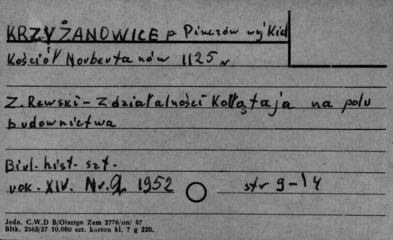 KRZYŻANOWICE p Pinczów wj Kid
Kościół Norbertanów 1125 r
Z. Rewski - Z działalności Kołłątaja na polu
budownictwa
Biul. hist. szt.
rok. XIV. Nr. 9 1952 str 9-14
Jedn. C.W.D B/Olsztyn Zam 2776/on/ 57
Błtk. 2563/57 10.000 szt. karton kl. 7 g 220.